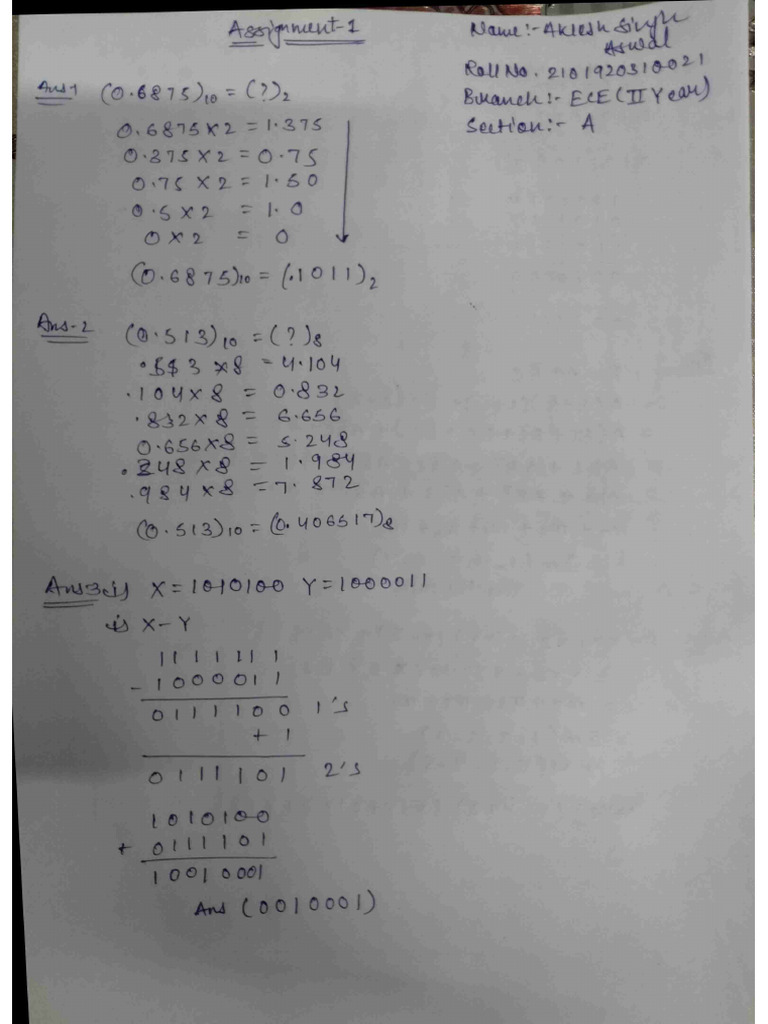 Assignment-1
Name:- Aklesh Singh
Aswal
Roll No. 2101920310021
Branch:- ECE (II Year)
Section:- A
Ans1 (0.6875)10 = (?)2
0.6875 x 2 = 1.375
0.375 x 2 = 0.75
0.75 x 2 = 1.50
0.5 x 2 = 1.0
0 x 2 = 0
(0.6875)10 = (.1011)2
Ans-2 (0.513)10 = (?)8
.513 x 8 = 4.104
.104 x 8 = 0.832
.832 x 8 = 6.656
0.656 x 8 = 5.248
.248 x 8 = 1.984
.984 x 8 = 7.872
(0.513)10 = (0.406517)8
Ans3 (i) X = 1010100 Y = 1000011
i) X - Y
1111111
- 1000011
0111100 1's
+ 1
0111101 2's
1010100
+ 0111101
10010001
Ans (0010001)